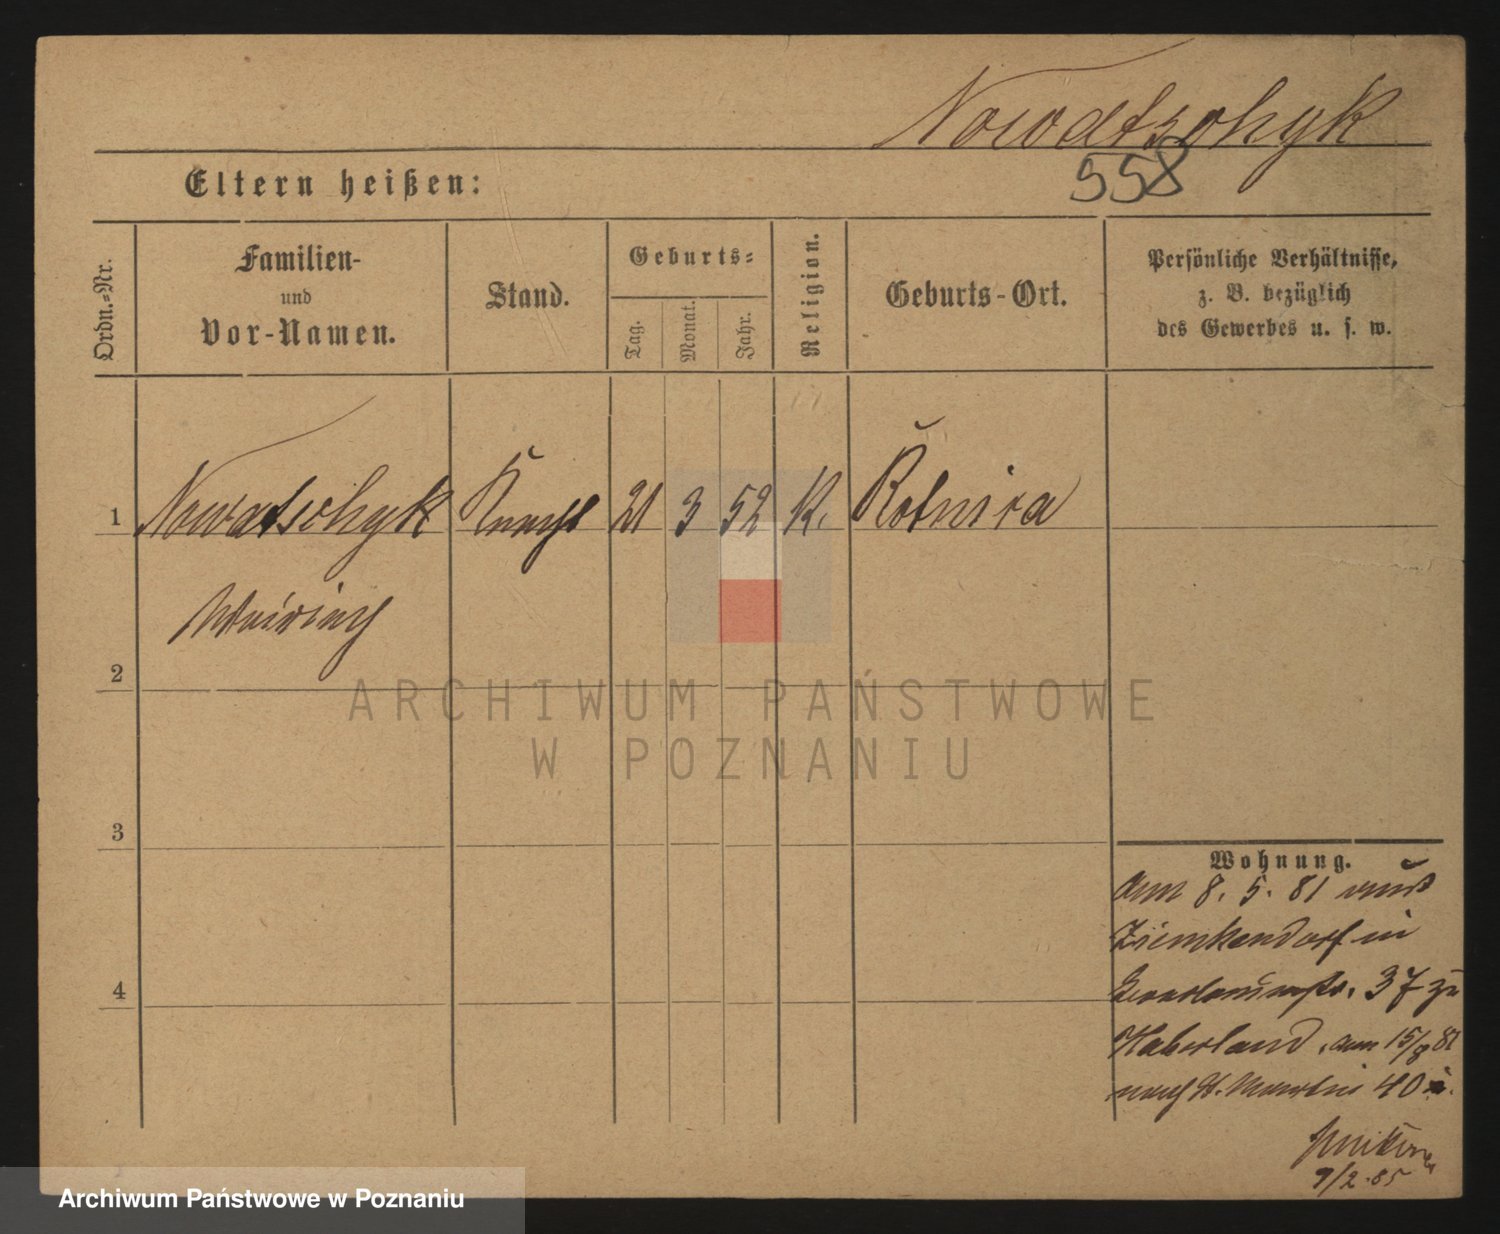 Nowatschyk
558
Eltern heißen:
Ordn.=Nr.
Familien-
und
Vor-Namen.
Stand.
Geburts=
Tag.
Monat.
Jahr.
Religion.
Geburts-Ort.
Persönliche Verhältnisse,
z. B. bezüglich
des Gewerbes u. s. w.
1 Nowatschyk Knecht 21 3 52 K. Kotnica
2
3
4
Wohnung.
am 8. 5. 81 aus
Ziemkendorf in
37 zu
Haberland, am 15/8 81
nach St. Martin 40
9/2.85
ARCHIWUM PAŃSTWOWE
W POZNANIU
Archiwum Państwowe w Poznaniu